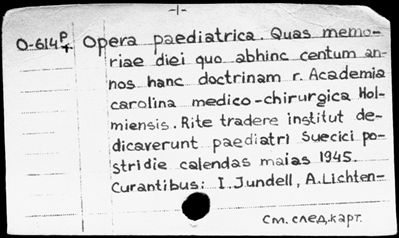 -1-
O-614 P/+ Opera paediatrica. Quas memo-
riae diei quo abhinc centum an-
nos hanc doctrinam r. Academia
carolina medico-chirurgica Hol-
miensis. Rite tradere institut de-
dicaverunt paediatri Suecici po-
stridie calendas maias 1945.
Curantibus: I. Jundell, A. Lichten-
См. след. карт.